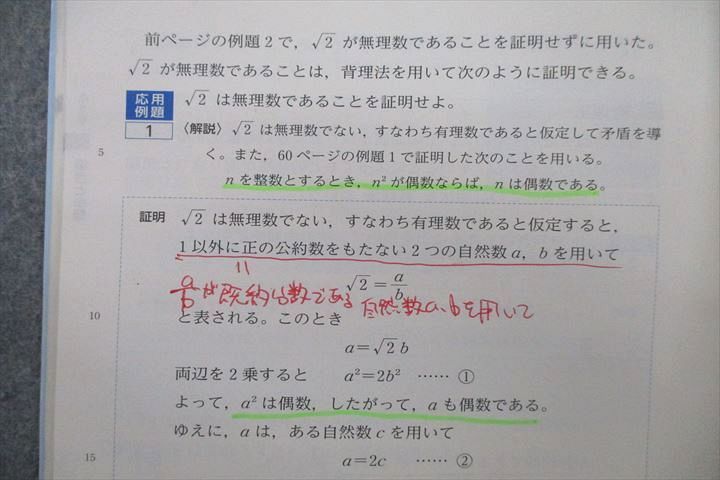 前ページの例題2で，√2 が無理数であることを証明せずに用いた。
√2 が無理数であることは，背理法を用いて次のように証明できる。
応用
例題
1
√2 は無理数であることを証明せよ。
〈解説〉√2 は無理数でない，すなわち有理数であると仮定して矛盾を導
5
く。また，60ページの例題1で証明した次のことを用いる。
nを整数とするとき，n²が偶数ならば，nは偶数である。
証明 √2 は無理数でない，すなわち有理数であると仮定すると，
1以外に正の公約数をもたない2つの自然数a，bを用いて
√2 = a/b
a/bが既約分数である 自然数a、bを用いて
10
と表される。このとき
a=√2 b
両辺を2乗すると a²=2b² …… ①
よって，a²は偶数，したがって，aも偶数である。
ゆえに，aは，ある自然数cを用いて
15
a=2c …… ②